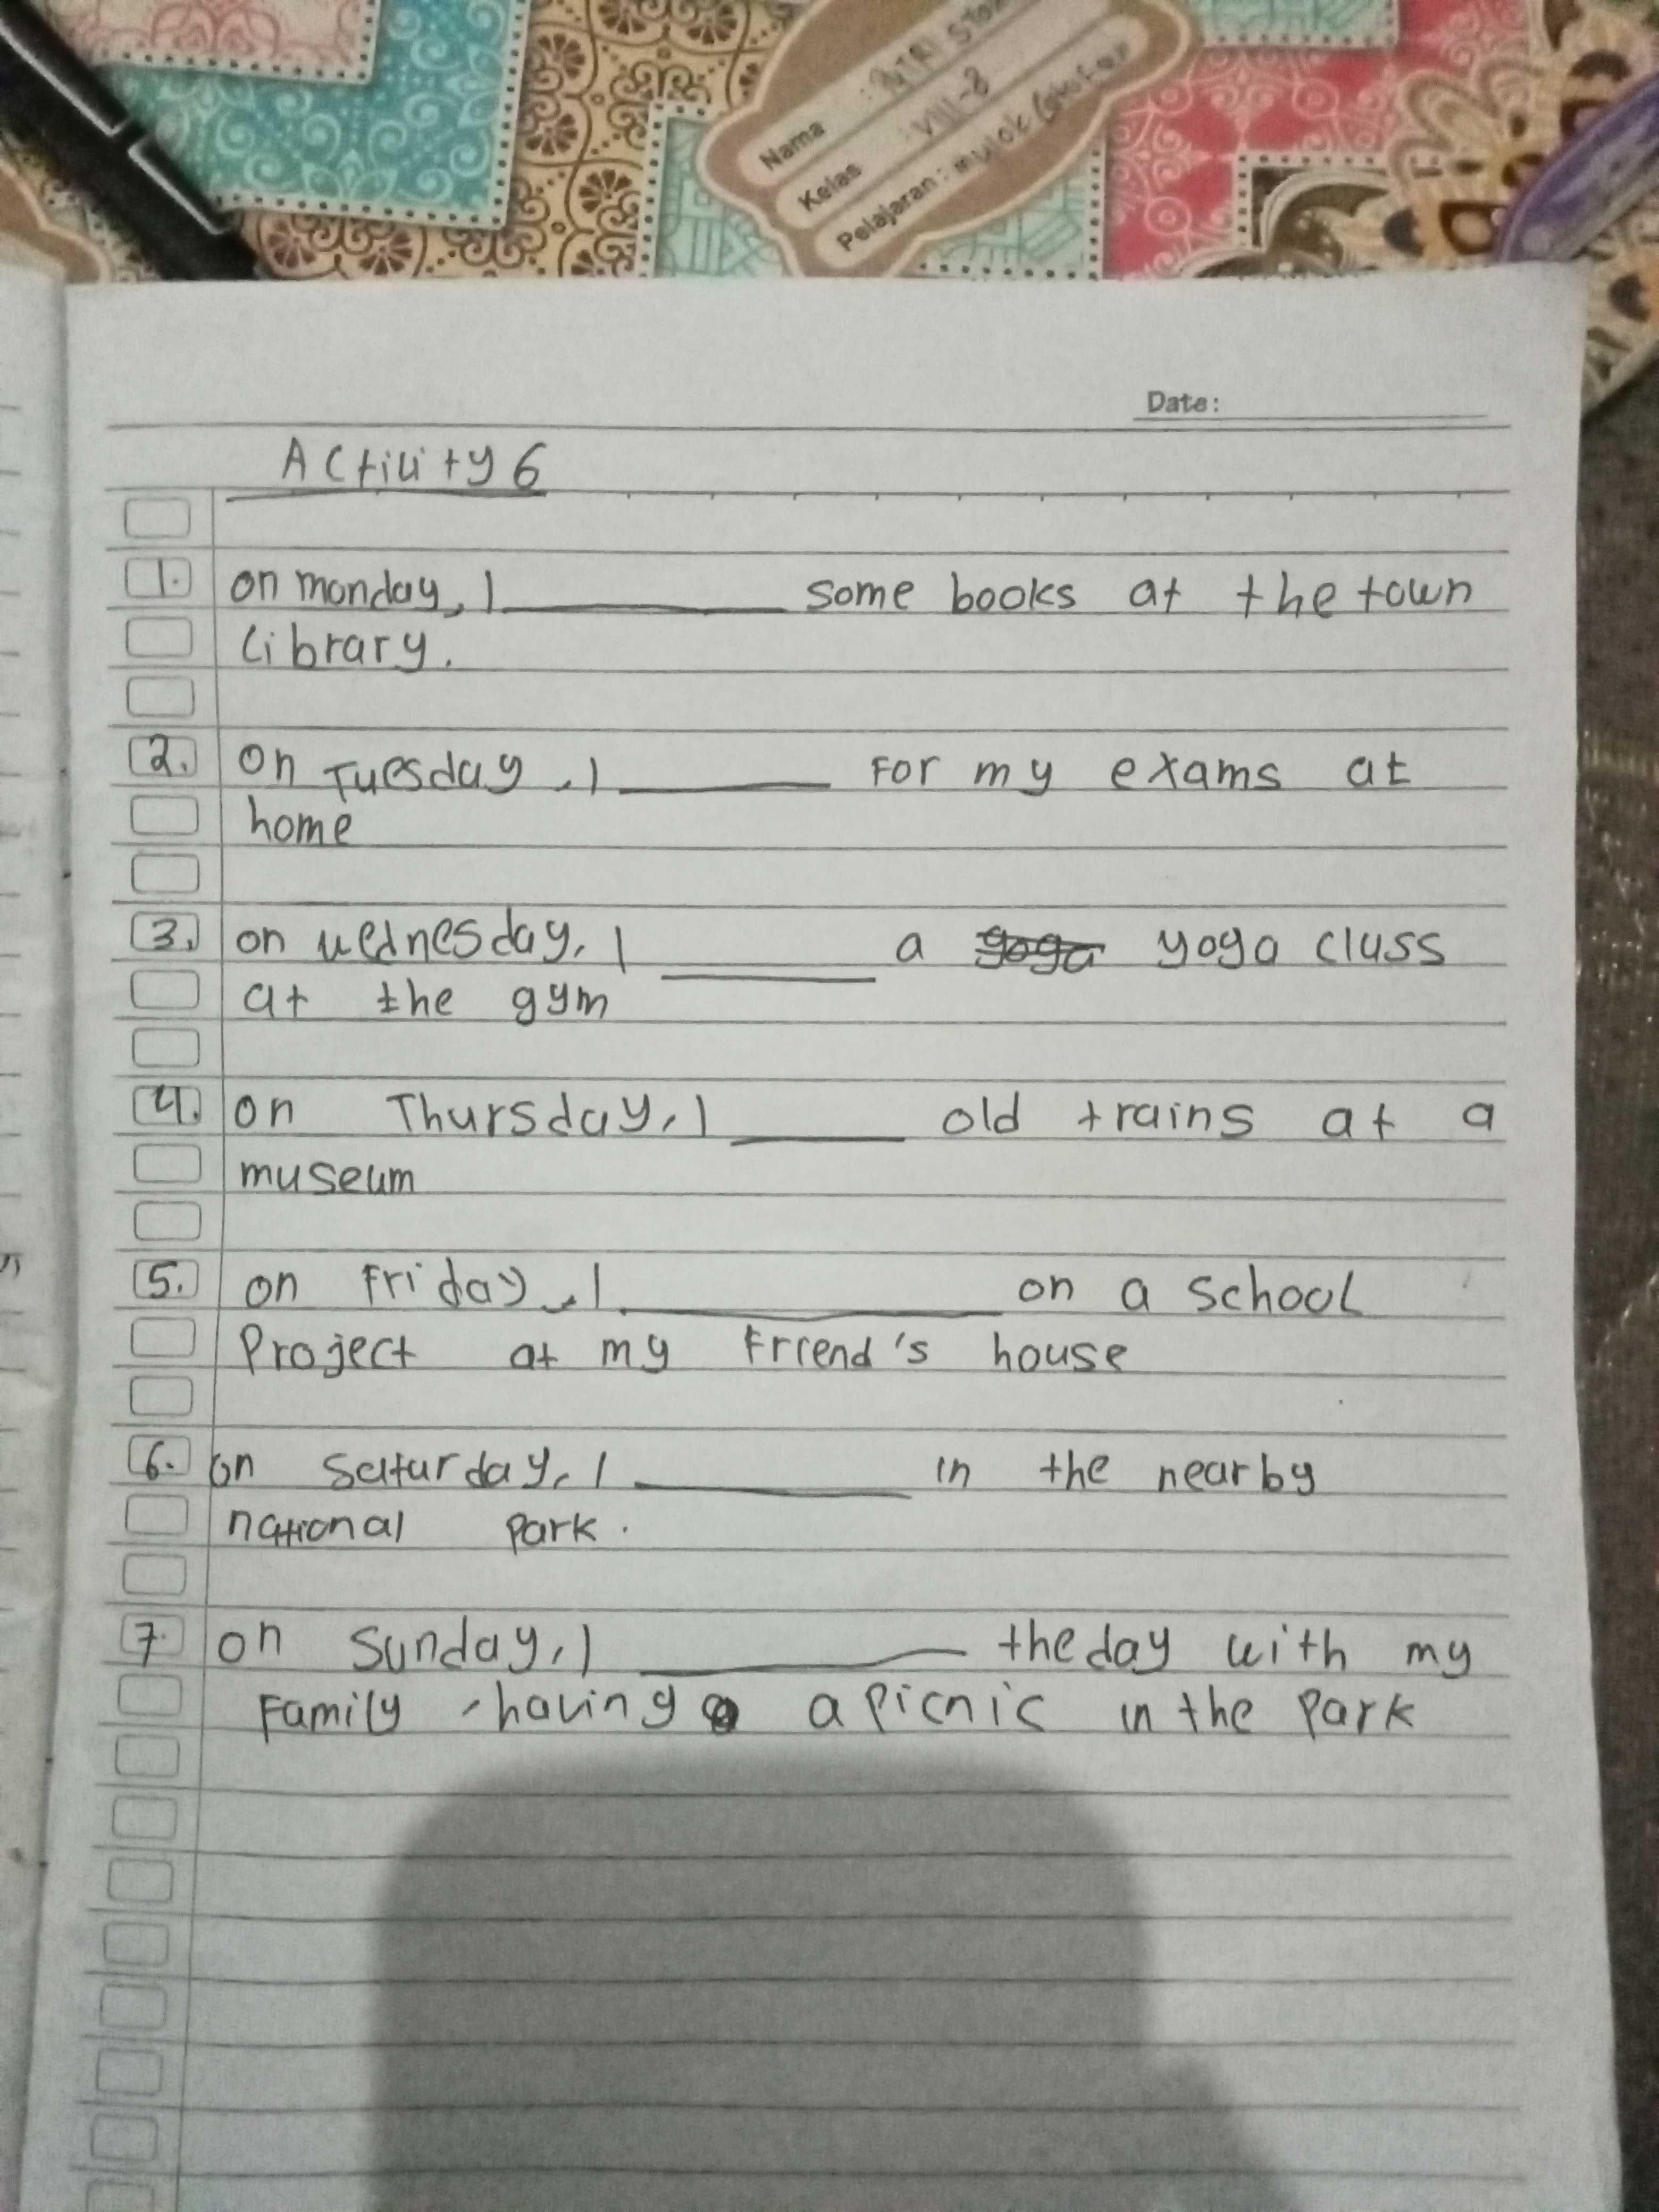 Nama :
Kelas : VIII-8
Pelajaran : mulok
Date:
Activity 6
1. on monday, I ________ some books at the town
library.
2. on Tuesday, I ________ For my exams at
home
3. on wednesday, I ________ a yoga class
at the gym
4. on Thursday, I ________ old trains at a
museum
5. on Friday, I ________ on a school
Project at my Friend's house
6. on saturday, I ________ in the nearby
national park.
7. on Sunday, I ________ the day with my
Family, having a picnic in the park